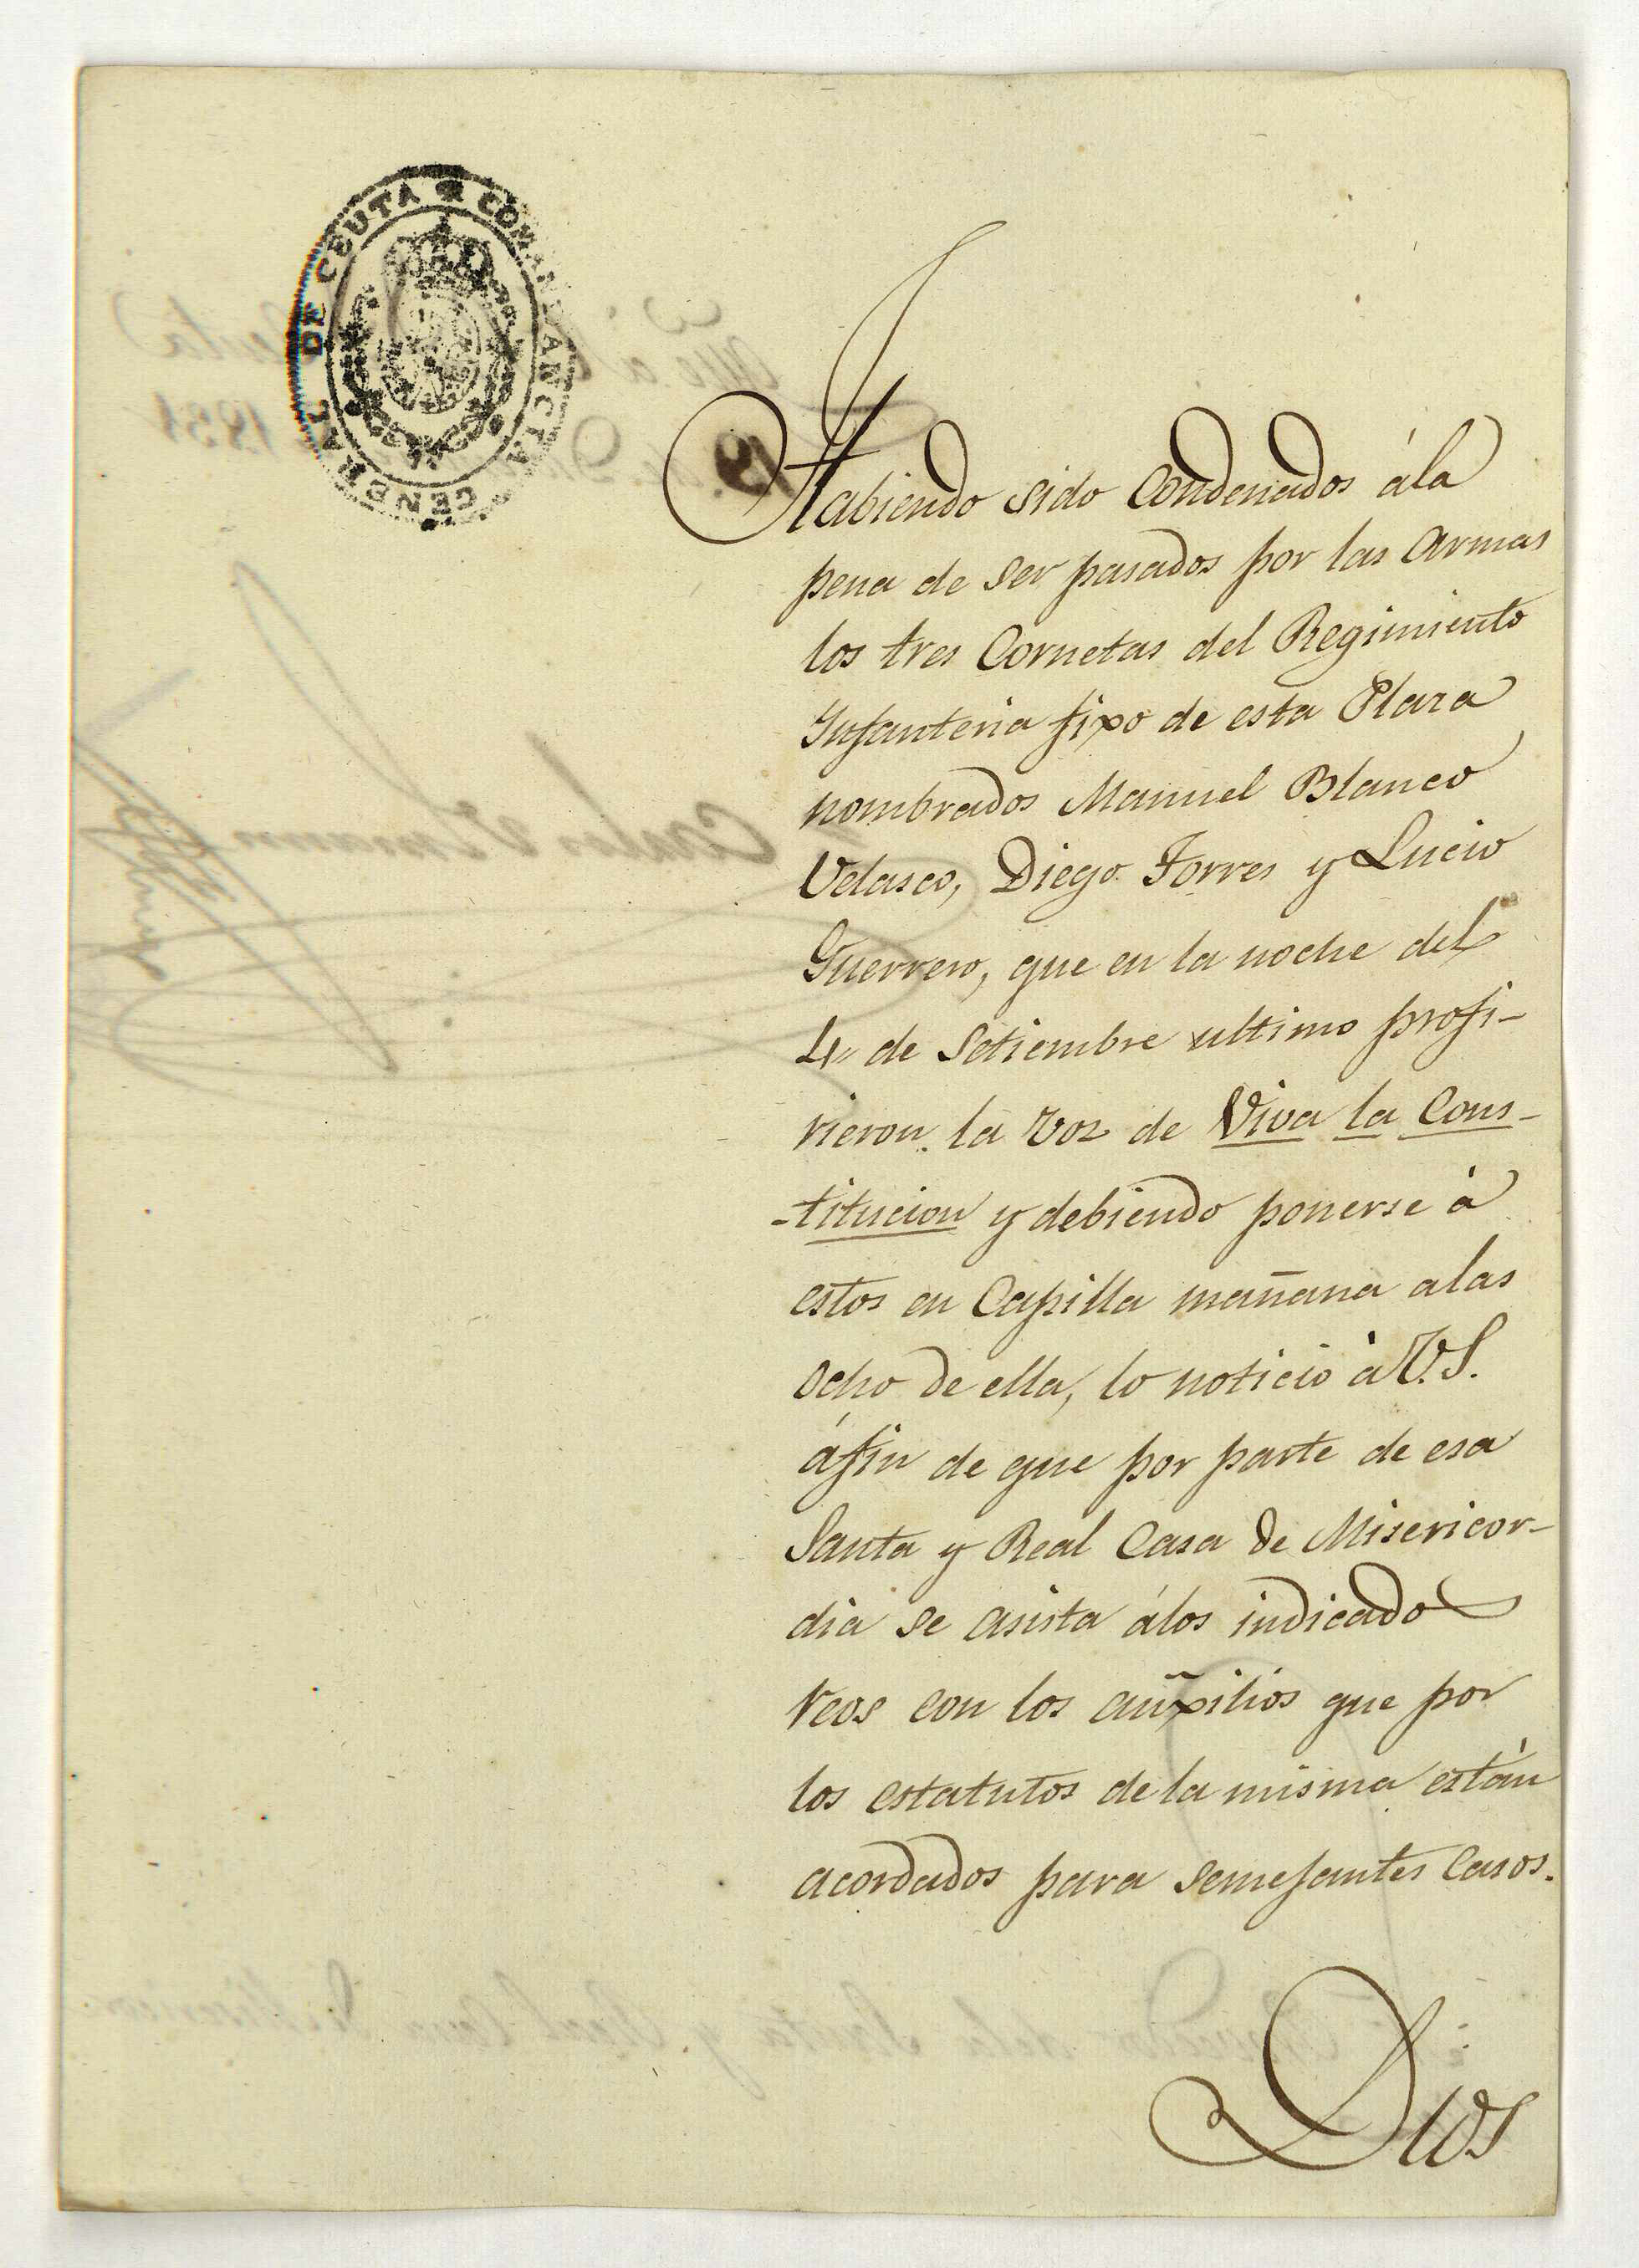 COMANDANCIA GENERAL DE CEUTA
Habiendo sido Condenados ála
pena de ser pasados por las Armas
los tres Cornetas del Regimiento
Infanteria fixo de esta Plaza
nombrados Manuel Blanco
Velasco, Diego Torres y Lucio
Guerrero, que en la noche del
4,, de Setiembre ultimo profi-
rieron la voz de Viva la Cons-
-titucion y debiendo ponerse á
estos en Capilla mañana alas
ocho de ella, lo noticio à V.S.
áfin de que por parte de esa
Santa y Real Casa de Misericor-
dia se asista álos indicados
reos con los auxilios que por
los estatutos dela misma están
acordados para semejantes Casos.
Dios